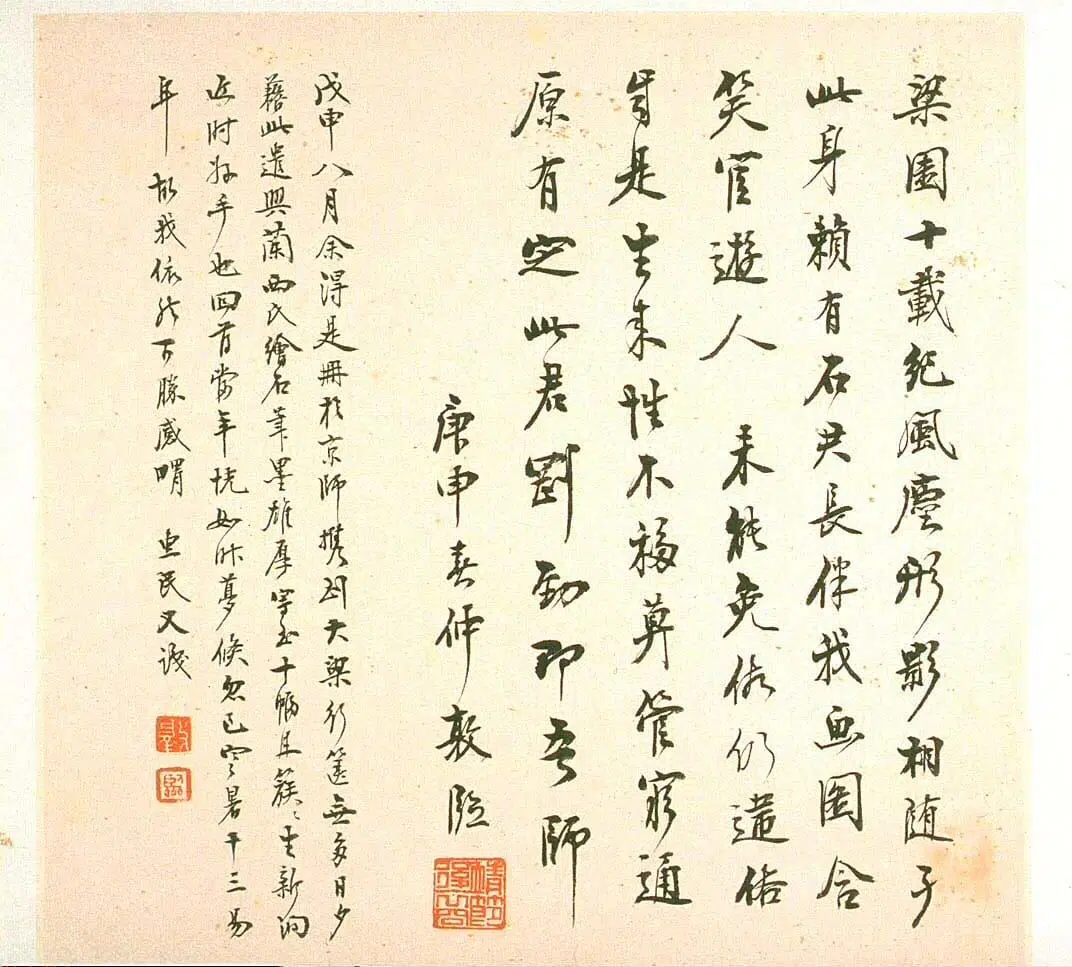 梁園十載紀風塵形影相随子
此身賴有石共長伴我画圖合
笑宦遊人　未能免俗仍遣俗
自是生来性不移莫管窮通
原有定此君剛勁即吾師
庚申春仲敦臨
戊申八月余得是冊於京師攜到大梁行篋無多日夕
藉此遣興蘭西氏繪石筆墨雄厚寫至十幅且簇〻生新洵
近时好手也回首當年恍如昨夢倏忽已寒暑十三易
年　故我依然不勝感喟　民又識